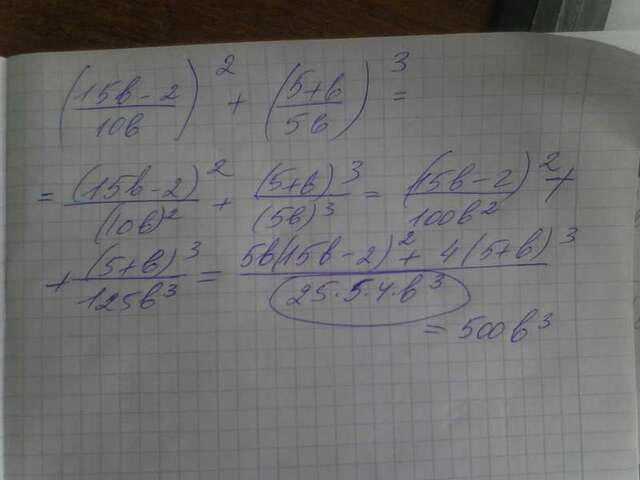 ((15b-2)/(10b))² + ((5+b)/(5b))³ =
= (15b-2)²/(10b)² + (5+b)³/(5b)³ = (15b-2)²/(100b²) +
+ (5+b)³/(125b³) = (5b(15b-2)² + 4(5+b)³)/(25·5·4·b³)
= 500b³